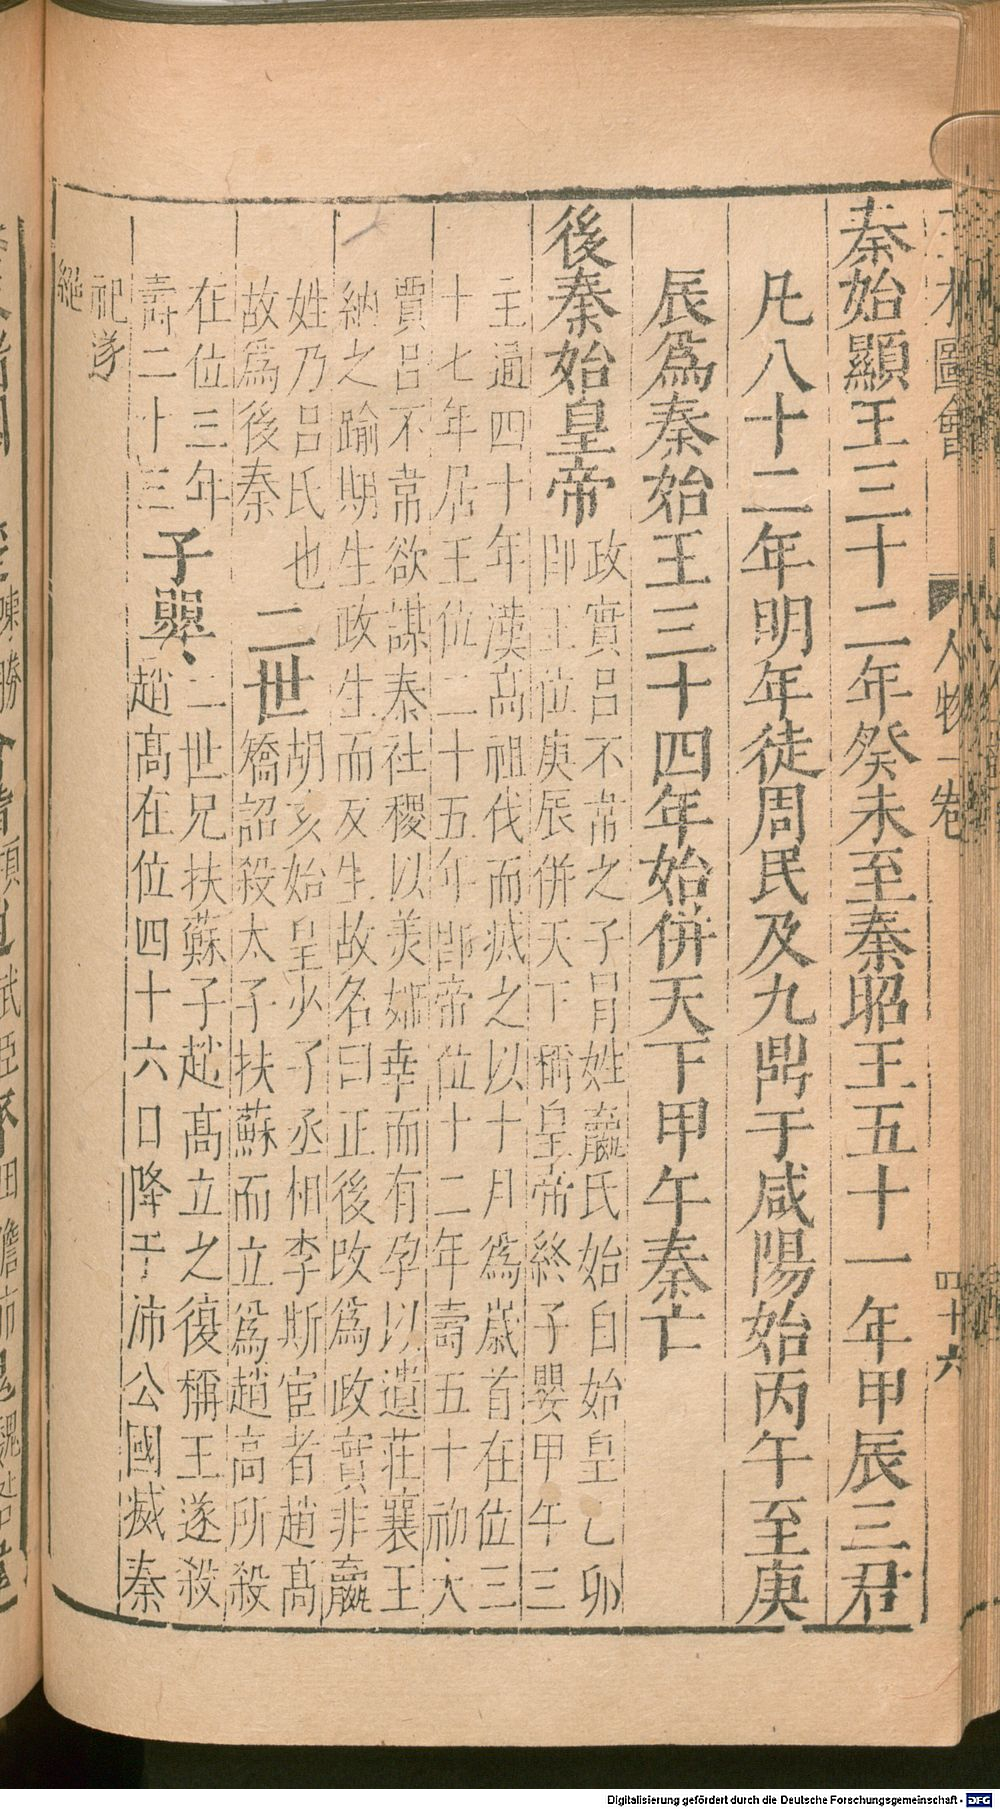 秦始顯王三十二年癸未至秦昭王五十一年甲辰三君
凡八十二年明年徒周民及九鼎于咸陽始丙午至庚
辰爲秦始王三十四年始併天下甲午秦亡
後秦始皇帝
政實呂不韋之子冐姓嬴氏始自始皇乙卯
即王位庚辰併天下稱皇帝終子嬰甲午三
主通四十年漢高祖伐而滅之以十月爲嵗首在位三
十七年居王位二十五年即帝位十二年壽五十初大
賈呂不韋欲謀秦社稷以美姬幸而有孕以遺莊襄王
納之踰期生政生而反生故名曰正後改爲政實非嬴
姓乃呂氏也
故爲後秦
二世
胡亥始皇少子丞相李斯宦者趙髙
矯詔殺太子扶蘇而立爲趙高所殺
在位三年
壽二十三
子嬰
二世兄扶蘇子趙髙立之復稱王遂殺
趙髙在位四十六日降于沛公國滅秦
祀遂
絕
圖會
人物一卷
四十六
Digitalisierung gefördert durch die Deutsche Forschungsgemeinschaft - DFG